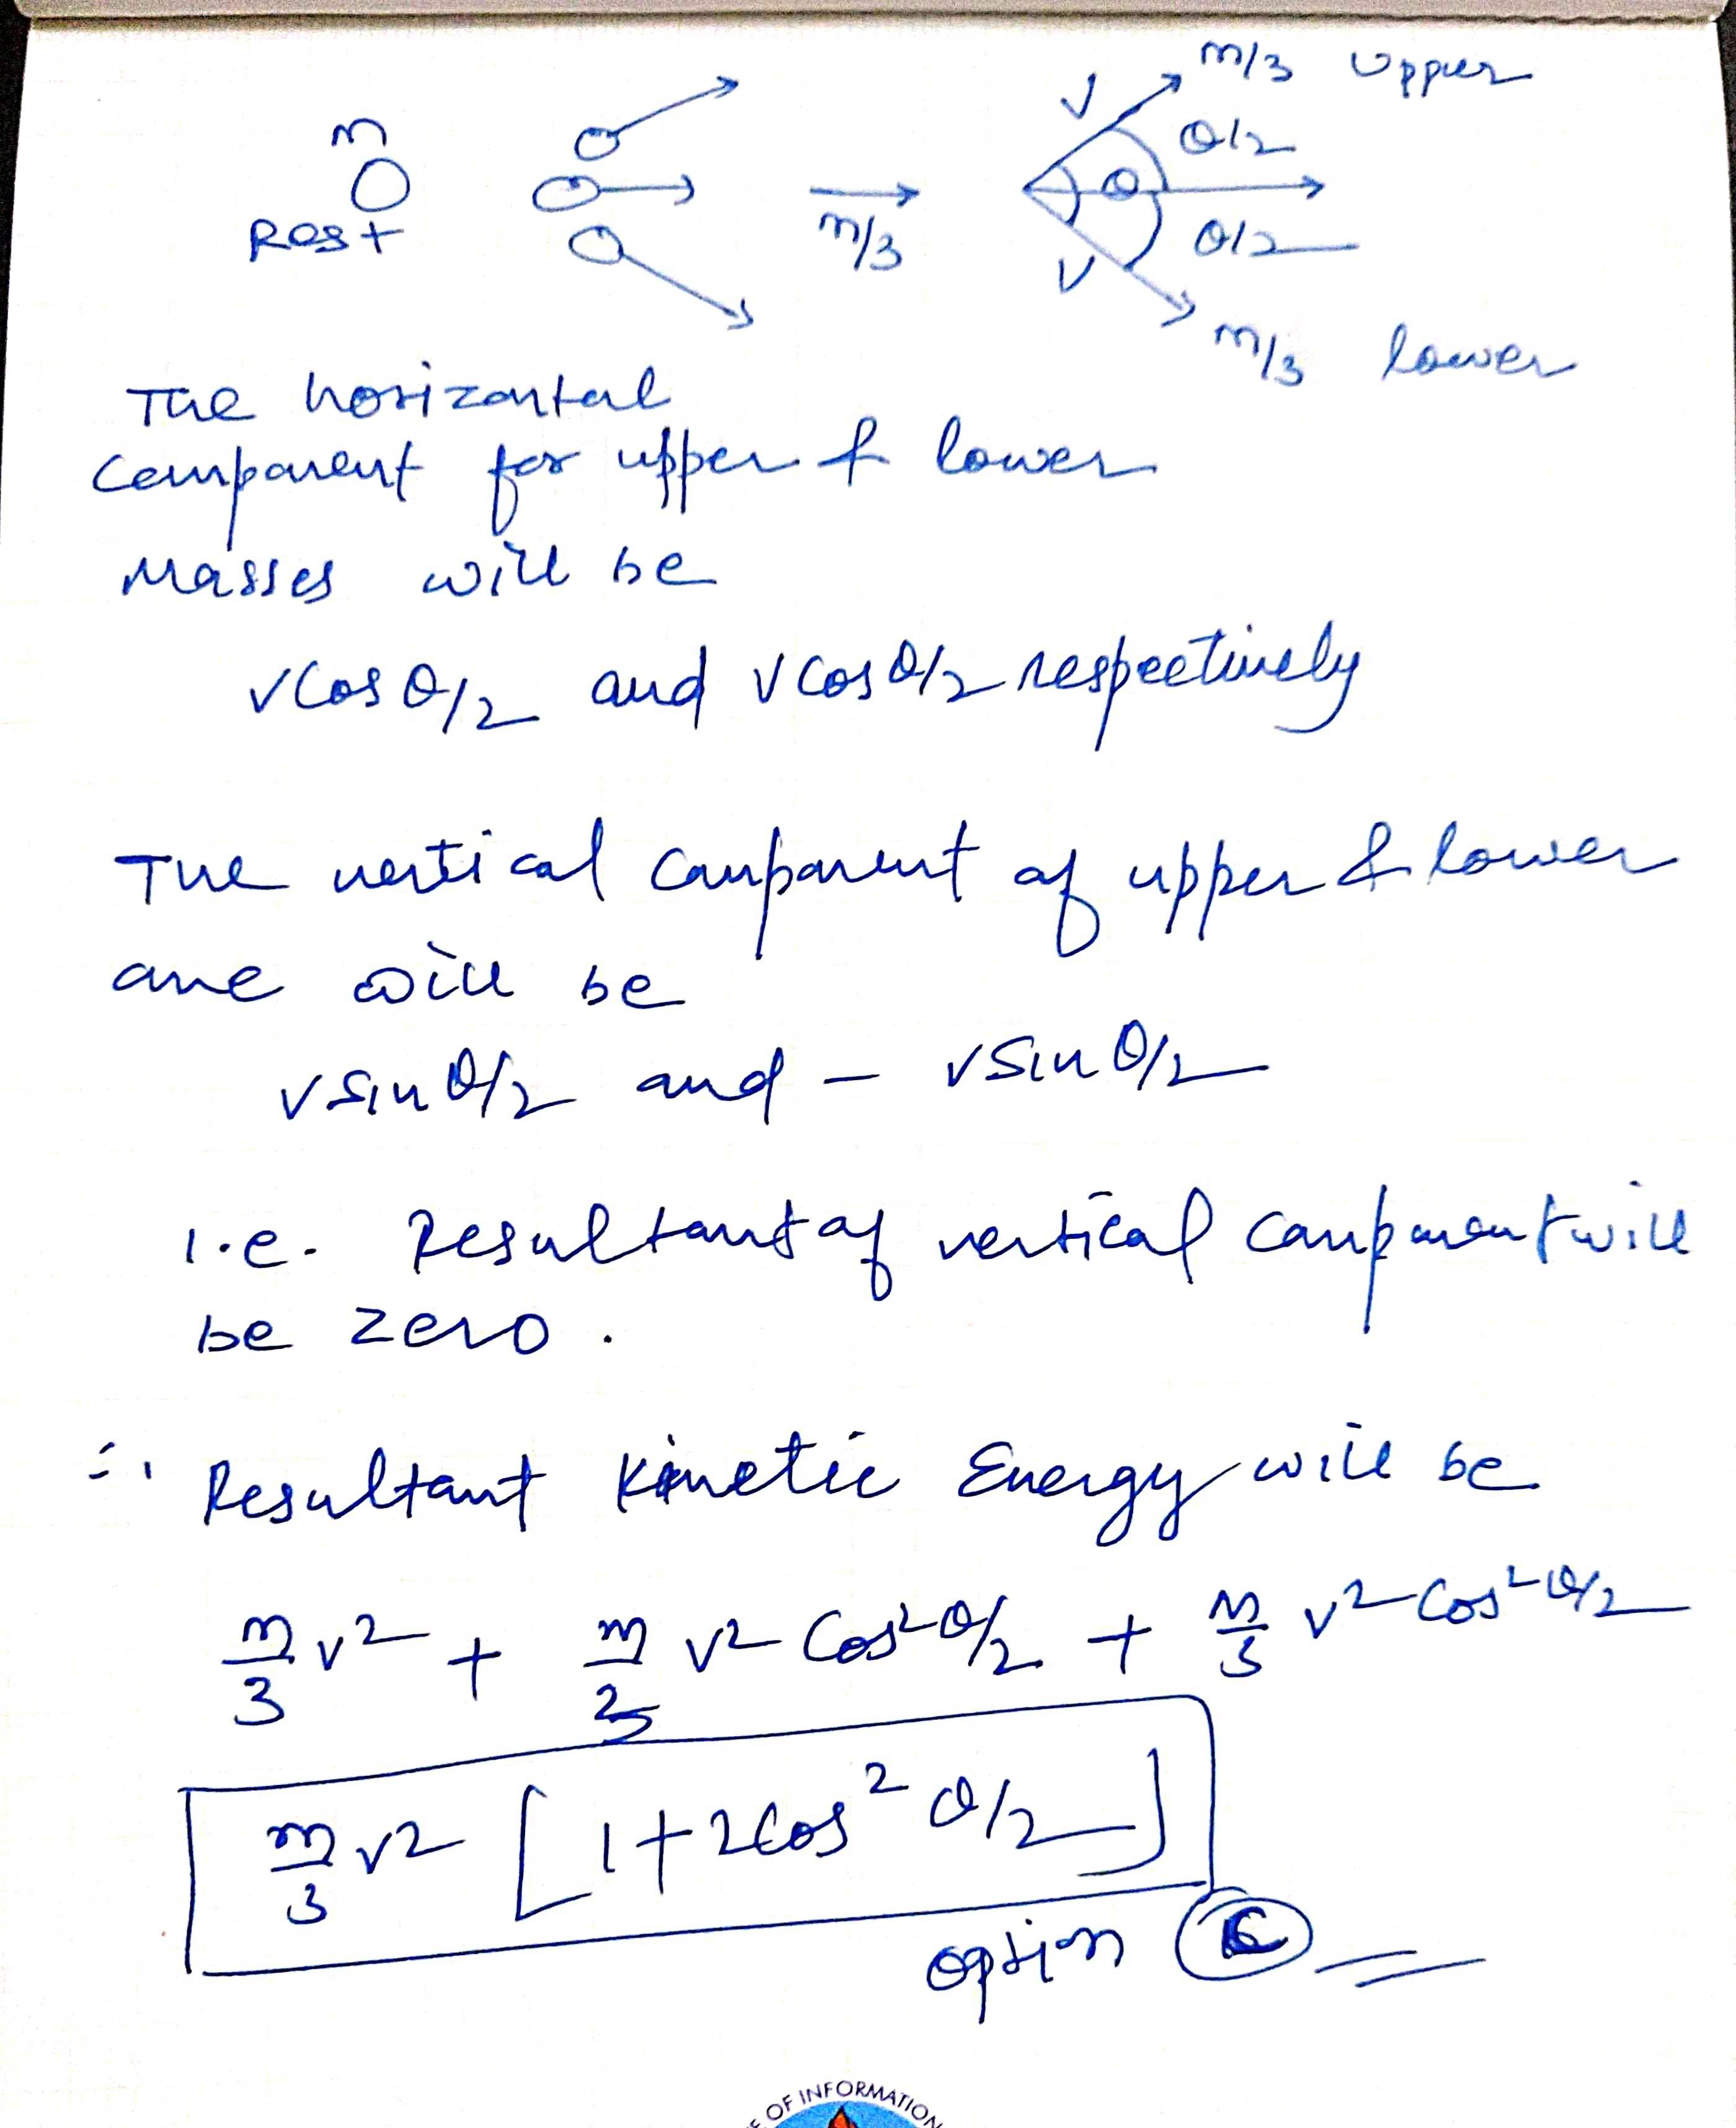 m
Rest
m/3
V
m/3 Upper
θ/2
θ
θ/2
V
m/3 lower
The horizontal
component for upper & lower
Masses will be
v Cos θ/2 and v Cos θ/2 respectively
The vertical component of upper & lower
one will be
v sin θ/2 and - v sin θ/2
i.e. Resultant of vertical component will
be zero.
∴ Resultant Kinetic Energy will be
m/3 v² + m/3 v² Cos² θ/2 + m/3 v² Cos² θ/2
m/3 v² [1 + 2 Cos² θ/2]
option C
OF INFORMATION